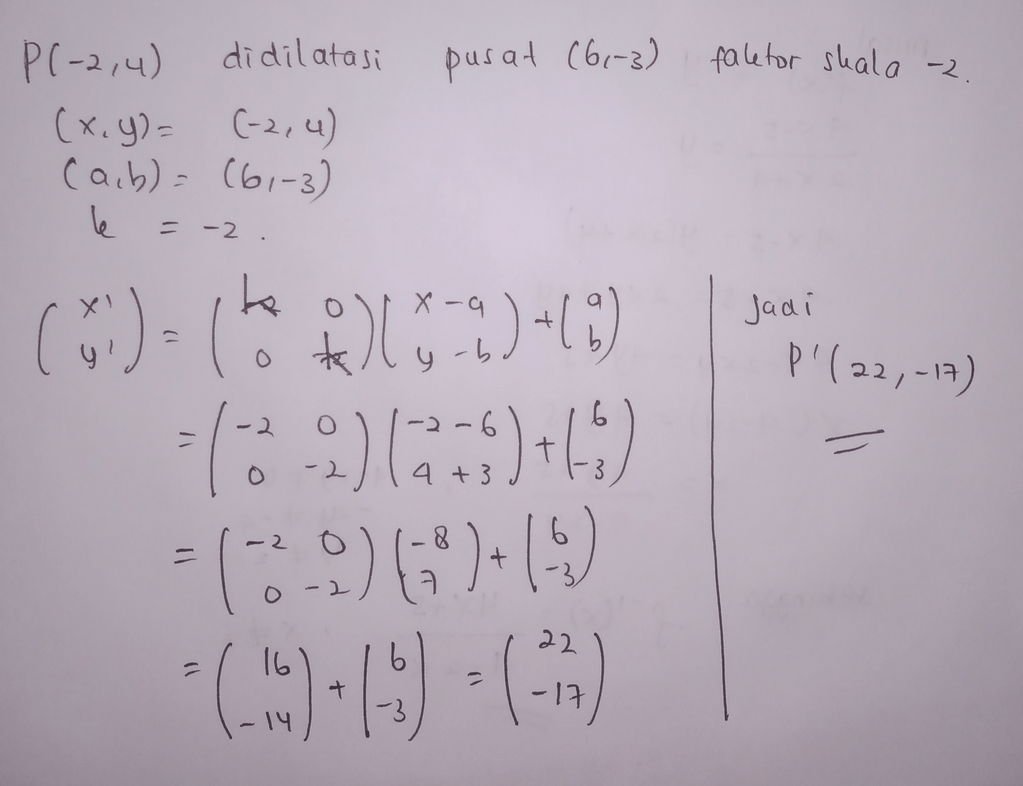 P(-2,4) didilatasi pusat (6,-3) faktor skala -2.
(x,y) = (-2,4)
(a,b) = (6,-3)
k = -2.
(x' y') = (k 0 0 k)(x-a y-b) + (a b)
= (-2 0 0 -2)(-2-6 4+3) + (6 -3)
= (-2 0 0 -2)(-8 7) + (6 -3)
= (16 -14) + (6 -3) = (22 -17)
Jadi
P'(22,-17)